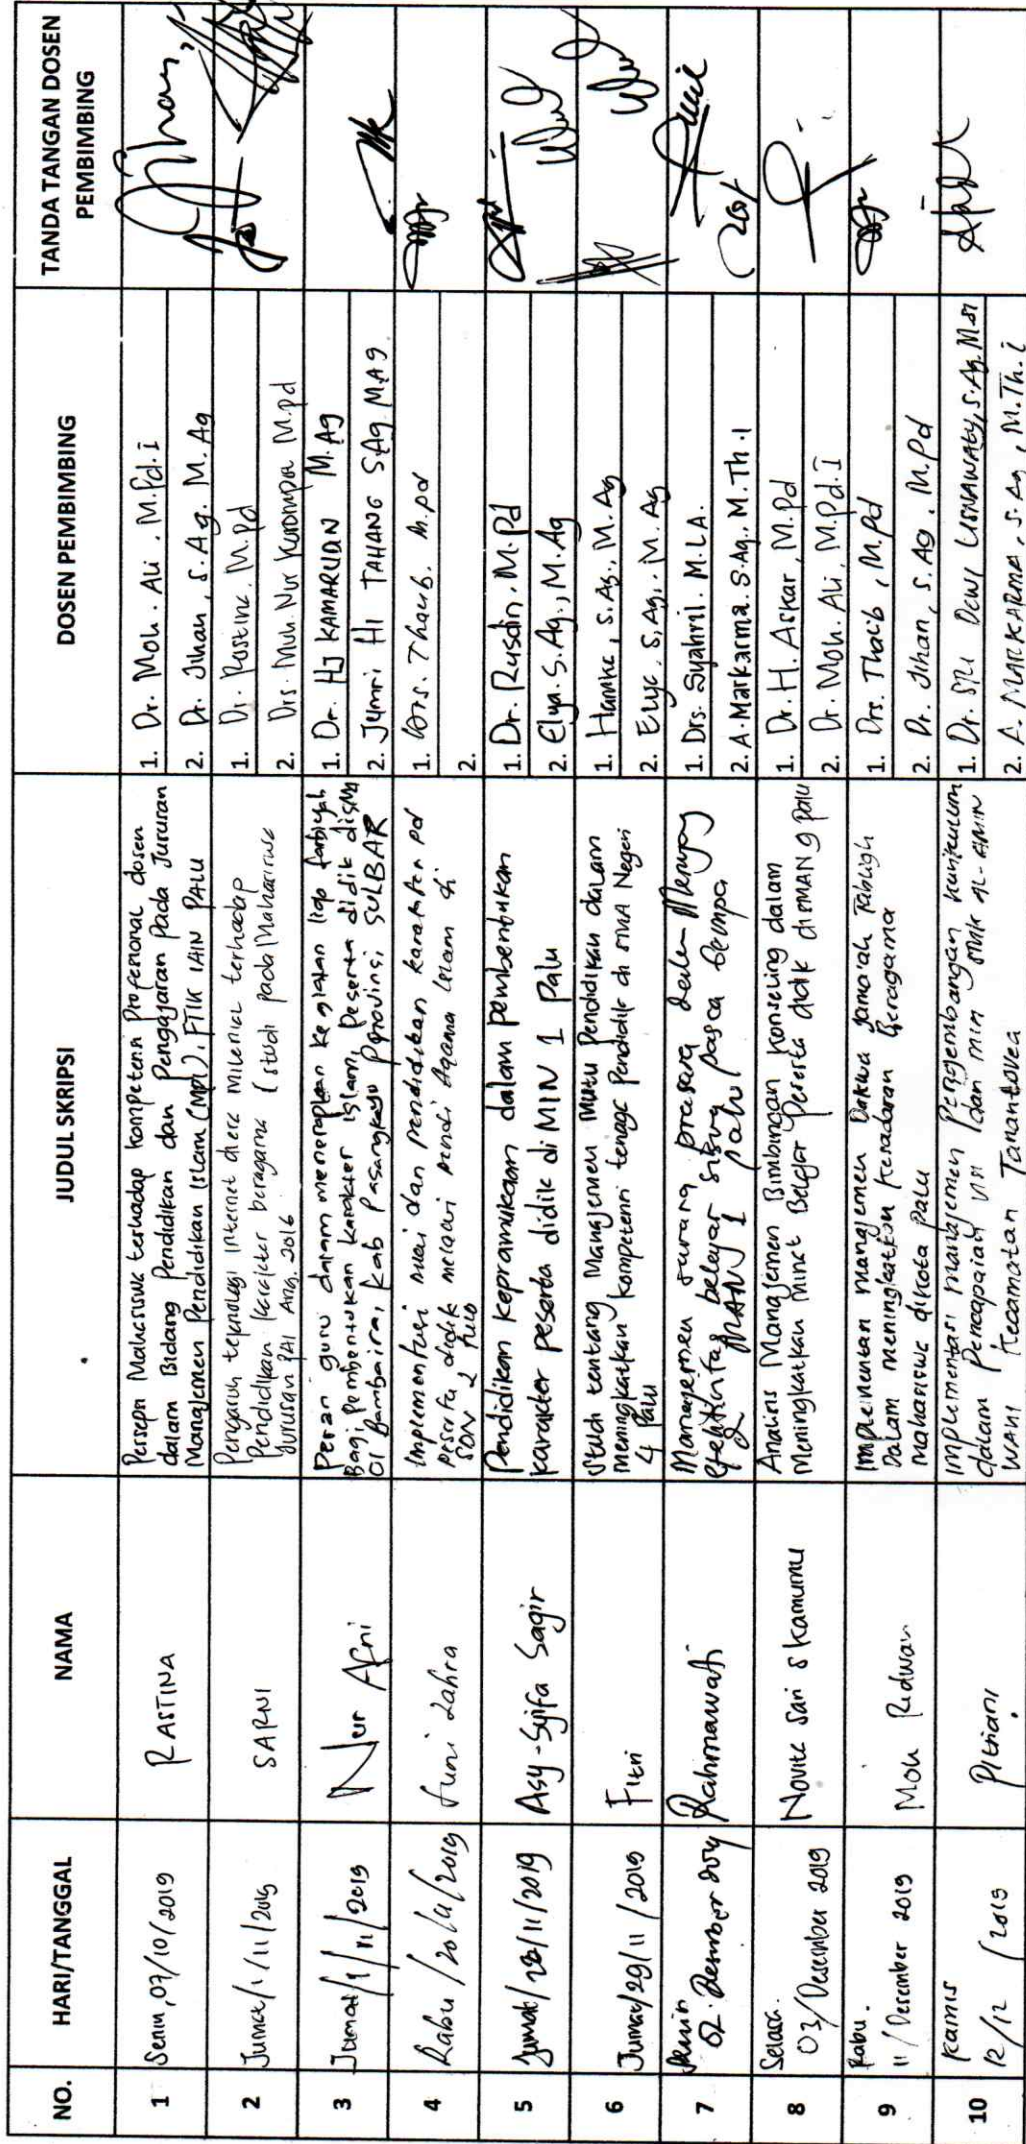 NO.
HARI/TANGGAL
NAMA
JUDUL SKRIPSI
DOSEN PEMBIMBING
TANDA TANGAN DOSEN
PEMBIMBING
1
Senin, 07/10/2019
RASTINA
Persepsi Mahasiswa terhadap kompetensi Profesional dosen
dalam Bidang Pendidikan dan Pengajaran Pada Jurusan
Manajemen Pendidikan Islam (MPI), FTIK IAIN PALU
1. Dr. Moh. Ali, M.Pd.I
2. Dr. Jihan, S.Ag. M.Ag
2
Jumat/1/11/2019
SARNI
Pengaruh teknologi Internet diera Milenial terhadap
Pendidikan karakter beragama (studi pada Mahasiswa
Jurusan PAI Ang. 2016
1. Dr. Rustina, M.Pd
2. Drs. Muh. Nur Korompot M.pd
3
Jumat/1/11/2019
Nur Afni
Peran guru dalam menerapkan kegiatan liqo tarbiyah
Bagi Pembentukan karakter Islam, Peserta didik diSMA
01 Bambaira, kab Pasangkayu Provinsi SULBAR
1. Dr. Hj KAMARUDN M.Ag
2. Jumri HI TAHANG SAg. MAg.
4
Rabu /20/11/2019
Juni Zahra
Implementasi nilai dan Pendidikan karakter pd
peserta didik melalui Pendi Agama Islam di
SDN 2 Palu
1. Drs. Thaib. M.pd
2.
5
Jumat/ 22/11/2019
Asy-Syifa Sagir
Pendidikan kepramukaan dalam pembentukan
karakter peserta didik di MIN 1 Palu
1. Dr. Rusdin, M.Pd
2. Elya. S.Ag., M.Ag
6
Jumat/29/11/2019
Fitri
Studi tentang Manajemen Mutu Pendidikan dalam
meningkatkan kompetensi tenaga Pendidik di SMA Negeri
4 Palu
1. Hamka, S.Ag., M.Ag
2. Elya. S.Ag,. M.Ag
7
Senin
02. Desember 2019
Rahmawati
Manajemen sarana prasarana dalam Menunjang
efektifitas belajar siswa pasca Gempa
di MAN 1 Palu
1. Drs. Syahril. M.LA.
2. A.Markarma. S.Ag., M.Th.I
8
Selasa.
03/Desember 2019
Novita Sari S Kamumu
Analisis Manajemen Bimbingan Konseling dalam
Meningkatkan Minat Belajar Peserta didik di MAN 9 Palu
1. Dr. H. Askar, M.Pd
2. Dr. Moh. Ali, M.Pd.I
9
Rabu.
11/Desember 2019
Moh Ridwan
Implementasi Manajemen Dakwa Jama'ah Tabligh
Dalam meningkatkan kesadaran Beragama
mahasiswa dikota Palu
1. Drs. Thalib, M.Pd
2. Dr. Jihan, S.Ag, M.Pd
10
Kamis
12/12 /2019
Pitriani
Implementasi manajemen Pengembangan kurikulum
dalam Pencapaian dan min AL-AMIN
WANI Kecamatan Tanantovea
1. Dr. SRI Dewi LISNAWATY, S.Ag. M.si
2. A. MARKARMA, S.Ag, M.Th.I